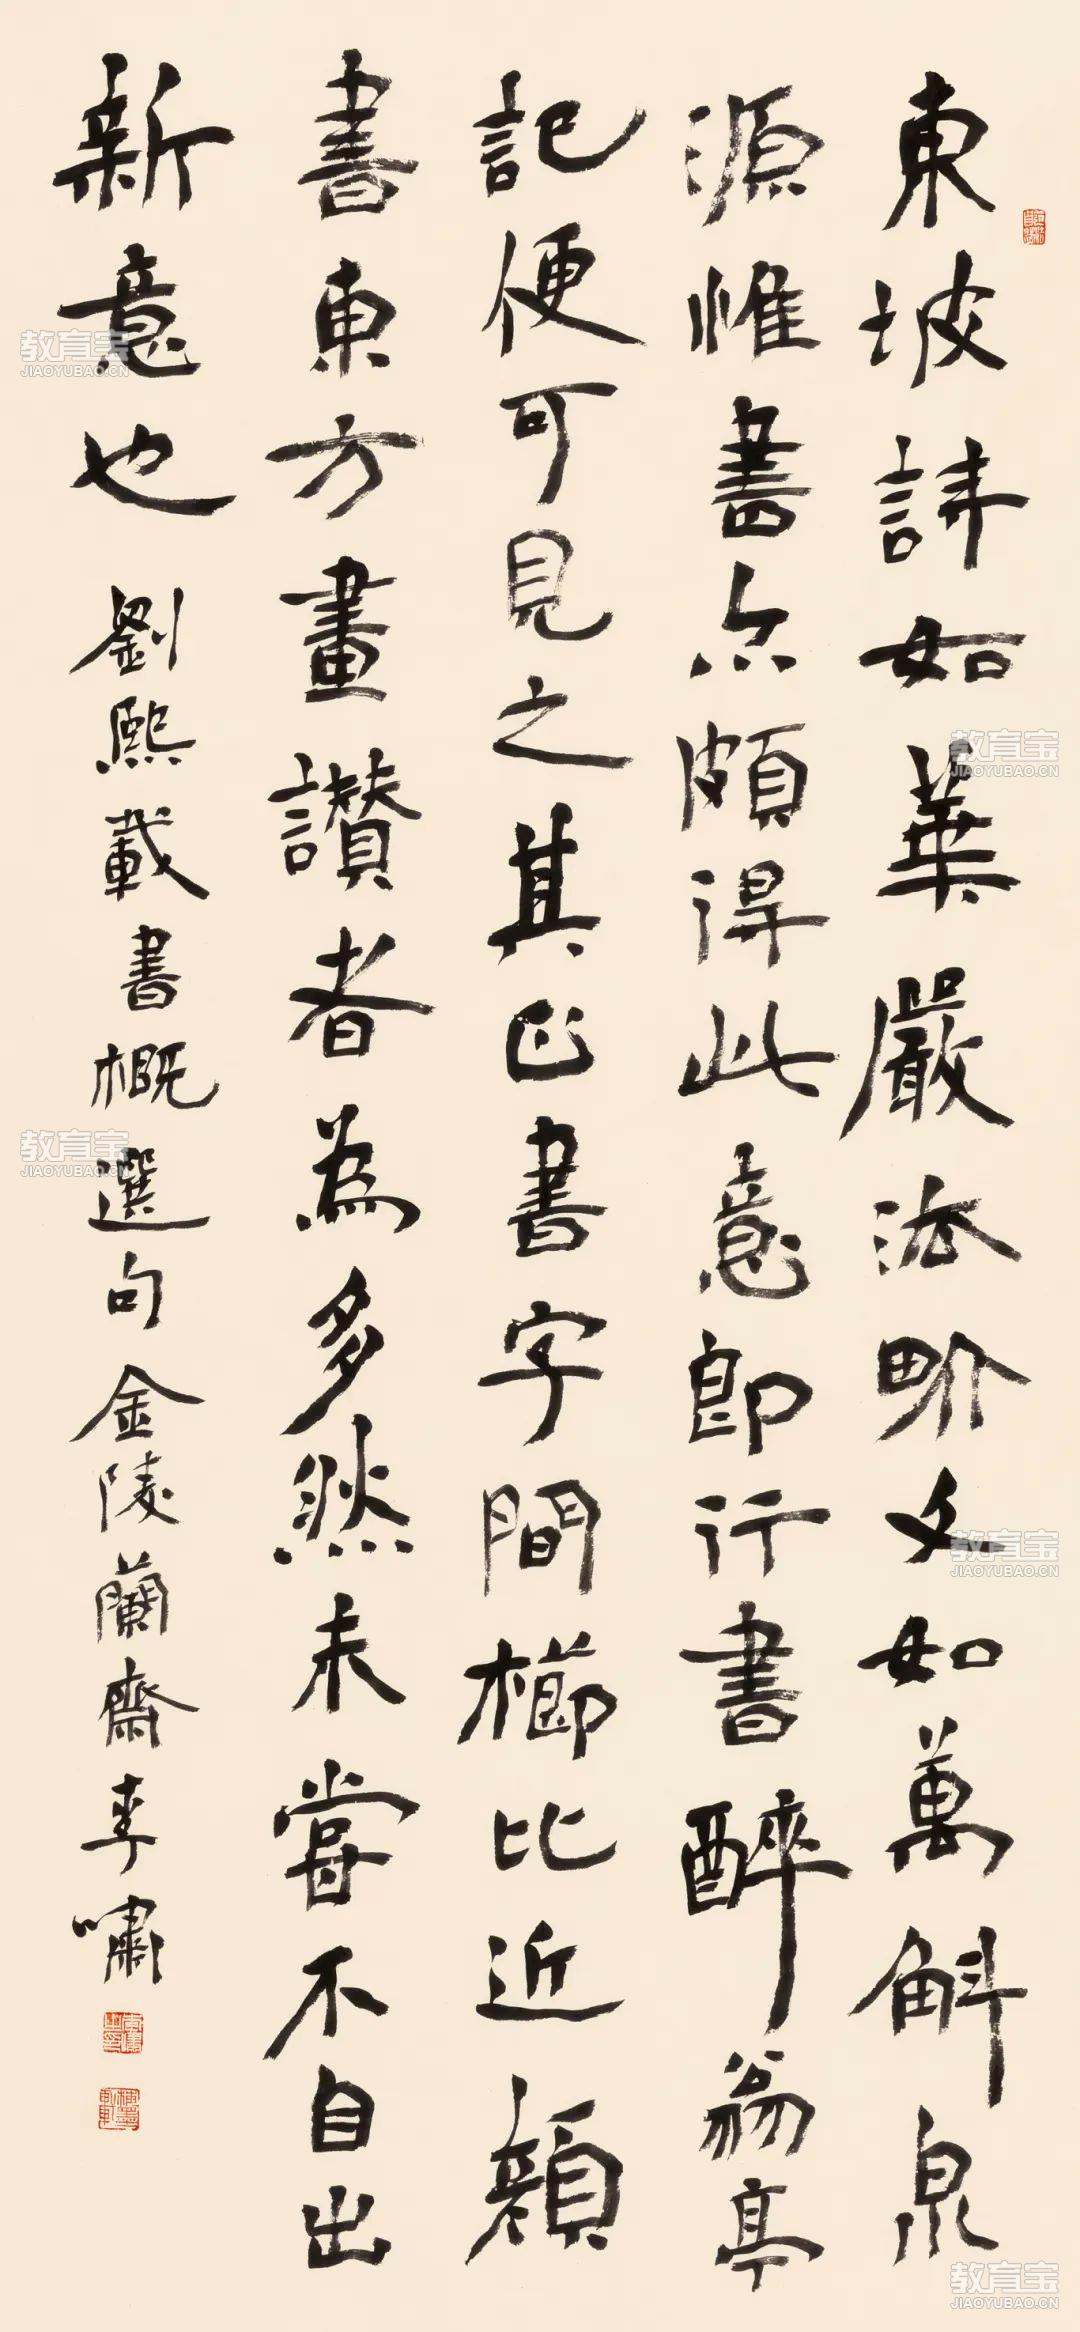 東坡詩如華嚴法界文如萬斛泉
源惟書亦頗得此意即行書醉翁亭
記便可見之其正書字間櫛比近顏
書東方畫讚者為多然未嘗不自出
新意也 劉熙載書概選句 金陵蘭齋李嘯
教育宝
JIAOYUBAO.CN
教育宝
JIAOYUBAO.CN
教育宝
JIAOYUBAO.CN
教育宝
JIAOYUBAO.CN
教育宝
JIAOYUBAO.CN